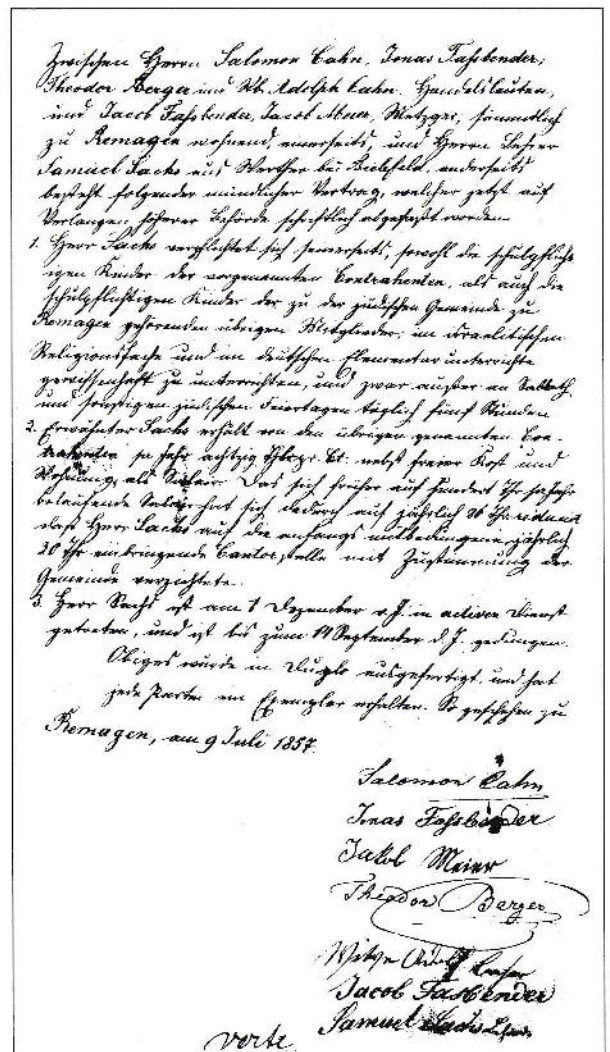 Zwischen Herrn Salomon Cahn, Jonas Faßbender,
Theodor Berger und Wb. Adolph Cahn, Handelsleuten,
und Jacob Faßbender, Jacob Meier, Metzger, sämmtlich
zu Remagen wohnend, einerseits, und Herrn Lehrer
Samuel Sachs aus Werther bei Bielefeld, anderseits
besteht folgender mündlicher Vertrag, welcher jetzt auf
Verlangen höherer Behörde schriftlich abgefaßt worden.
1. Herr Sachs verpflichtet sich seinerseits, sowohl die schulpflicht
igen Kinder der vorgenannten Contrahenten, als auch die
schulpflichtigen Kinder der zu der jüdischen Gemeinde zu
Remagen gehörenden übrigen Mitglieder, im israelitischen
Religionsfache und im deutschen Elementarunterrichte
gewissenhaft zu unterrichten, und zwar außer an Sabbath
und sonstigen jüdischen Feiertagen täglich fünf Stunden
2. Erwähnter Sachs erhält von den übrigen genannten Con-
trahenten pr Jahr achtzig Thlr pr. Ct. nebst freier Kost und
Wohnung, als Salair. Das sich früher auf hundert Thr
belaufende Salair hat sich dadurch auf jährlich 80 Thr reducirt
daß Herr Sachs auf die anfangs mitbedungene, jährlich
20 Thr einbringende Cantorstelle mit Zustimmung der
Gemeinde verzichtete.
3. Herr Sachs ist am 1 Dezember v. J. in activen Dienst
getreten, und ist bis zum 14 September d. J. gedungen.
Obiges wurde in Duplo ausgefertigt und hat
jede Partei ein Exemplar erhalten. So geschehen zu
Remagen, am 9 Juli 1857.
Salomon Cahn
Jonas Faßbender
Jakob Meier
Theodor Berger
Witwe Adolf
Jacob Fassbender
Samuel Sachs Lehrer
verte